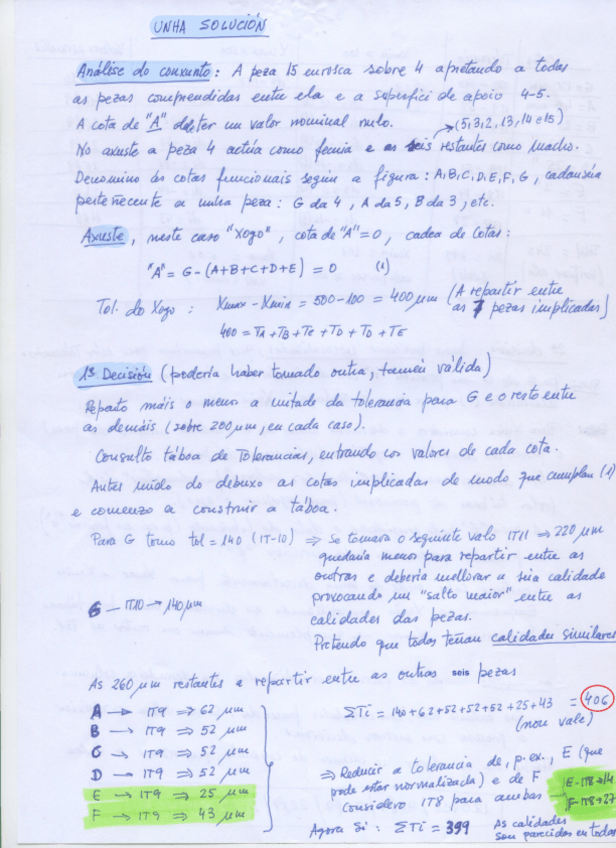 UNHA SOLUCIÓN
Análise do conxunto: A peza 15 enrosca sobre 4 apretando a todas
as pezas comprendidas entre ela e a superfici de apoio 4-5.
A cota de "A" de ter un valor nominal nulo.
(5,3,2,13,14 e 15)
No axuste a peza 4 actúa como femia e as seis restantes como macho.
Denomino ás cotas funcionais según a figura: A,B,C,D,E,F,G, cada unha
perteñecente a unha peza: G da 4, A da 5, B da 3, etc.
Axuste, neste caso "Xogo", cota de "A"=0, cadea de cotas:
"A" = G-(A+B+C+D+E) = 0 (1)
Tol. do Xogo: Xmax - Xmin = 500-100 = 400 μm (A repartir entre
as 7 pezas implicadas)
400 = TA+TB+TC+TD+TD+TE
1ª Decisión (podería haber tomado outra, tamén válida)
Reparto máis o menos a mitade da tolerancia para G e o resto entre
as demáis (sobre 200 μm, en cada caso).
Consulto táboa de Tolerancias, entrando cos valores de cada cota.
Antes mido do debuxo as cotas implicadas de modo que cumplan (1)
e comenzo a construir a táboa.
Para G tomo tol = 140 (IT-10) ⇒ Se tomara o seguinte valo IT11 ⇒ 220 μm
quedaría menos para repartir entre as
outras e debería mellorar a súa calidade
provocando un "salto maior" entre as
calidades das pezas.
G — IT10 → 140 μm
Pretendo que todas teñan calidades similares
As 260 μm restantes a repartir entre as outras seis pezas
A → IT9 ⇒ 62 μm
B → IT9 ⇒ 52 μm
C → IT9 ⇒ 52 μm
D → IT9 ⇒ 52 μm
E → IT9 ⇒ 25 μm
F → IT9 ⇒ 43 μm
ΣTi = 140+62+52+52+52+25+43 = 406
(non vale)
⇒ Reducir a tolerancia de, p.ex., E (que
pode estar normalizada) e de F
Considero IT8 para ambas →
E-IT8→14
F-IT8→27
Agora Si: ΣTi = 399 As calidades
son parecidas en todas